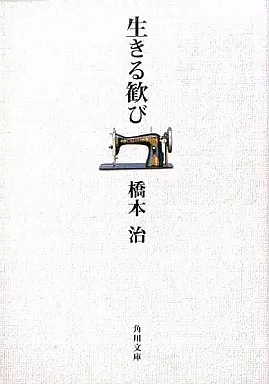 生きる歓び
橋本 治
角川文庫